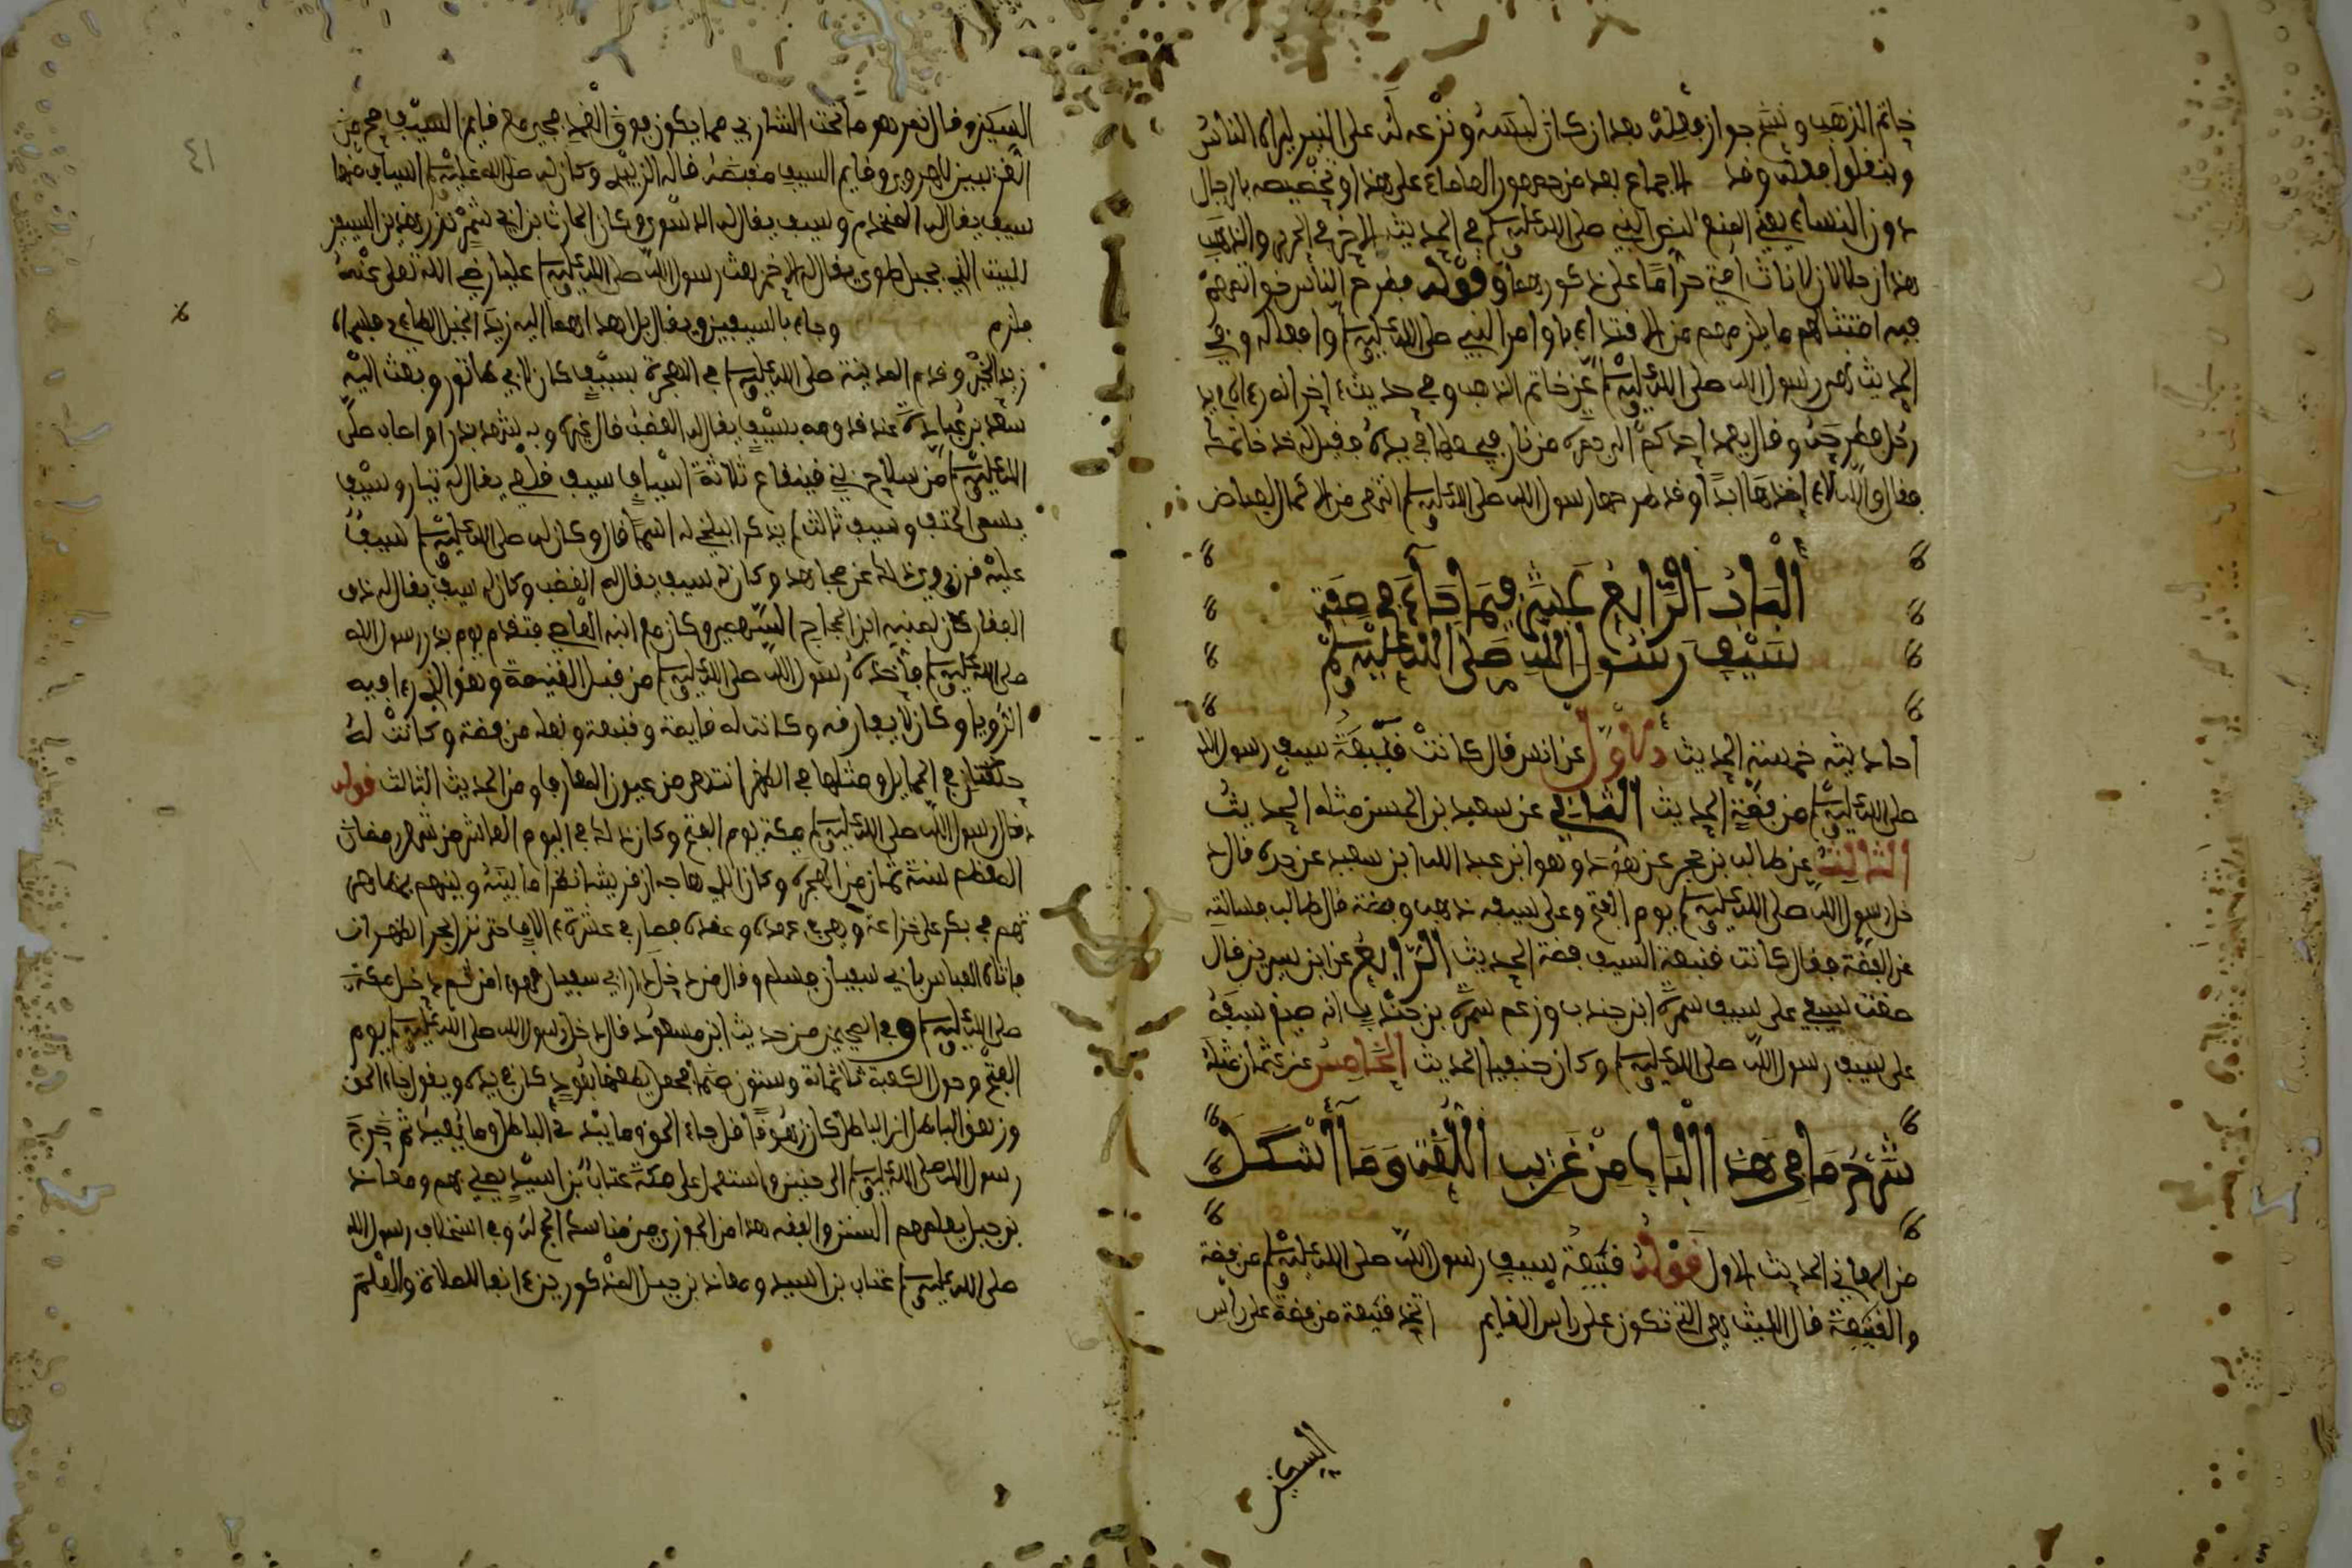 خاتم الذهب ونسخ جواز فعله بعد ان كان لبسه ونزعه له على المنبر ليراه الناس
وينقلوا فعله وقد الاجماع بعد من جمهور العلماء على هذا وتخصيصه بالرجال
دون النساء يعني المنع لنص النبي صلى الله عليه وسلم في الحديث الاخر في الحرير والذهب
هذان حلالان لاناث امتي حراما على ذكورها وقوله فطرح الناس خواتمهم
فيه امتثالهم ما يلزمهم من الاقتداء باوامر النبي صلى الله عليه وسلم وافعاله وفي
الحديث نهى رسول الله صلى الله عليه وسلم عن خاتم الذهب وفي حديث اخر انه رءاه في يد
رجل فطرحه وقال يعمد احدكم الى جمرة من نار فيجعلها في يده فقيل له خذ خاتمك
فقال والله لا ءاخذها ابدا وقد طرحها رسول الله صلى الله عليه وسلم انتهى من الاكمال لعياض
الباب الرابع عشر فيما جاء في صفة
سيف رسول الله صلى الله عليه وسلم
احاديثه خمسة الحديث الاول عن انس قال كانت قبيعة سيف رسول الله
صلى الله عليه وسلم من فضة الحديث الثاني عن سعيد بن الحسن مثله الحديث
الثالث عن طالب بن حجر عن هود وهو ابن عبد الله ابن سعيد عن جده قال د
خل رسول الله صلى الله عليه وسلم يوم الفتح وعلى سيفه ذهب وفضة قال طالب فسالته
عن الفضة فقال كانت قبيعة السيف فضة الحديث الرابع عن ابن سيرين قال
صنعت سيفي على سيف سمرة ابن جندب وزعم سمرة بن جندب انه صنع سيفه
على سيف رسول الله صلى الله عليه وسلم وكان حنفيا الحديث الخامس عن عثمان مثله
شرح ما في هذا الباب من غريب اللغة وما أشكل
من المعاني الحديث الاول قوله قبيعة سيف رسول الله صلى الله عليه وسلم من فضة
والقبيعة قال الليث هي التي تكون على راس القايم اتخذ قبيعة من فضة على راس
السكين
السكين وقال نعم هو ما تحت الشاربي مما يكون فوق الغمد فيجيء مع قايم السيف
سيف يقال له المخذم وسيف يقال له الرسوب وكان الحارث بن ابي شمر نذر هذين السيفين
للبيت الذي بجبل طيء يقال له الاخر بعث رسول الله صلى الله عليه وسلم عليا رضي الله تعلى عنه
فلزم وجاء بالسيفين ويقال بل اهداهما اليه زيد الخيل الطاءي فلما
زيد الخير وقدم المدينة صلى الله عليه وسلم في الهجرة بسيف كان لابي ماثور وبعث اليه
سعد بن عبادة عند قدومه بسيف يقال له العضب قال غيره وبه شهد بدرا واصاب صلى
الله عليه وسلم من سلاح بني قينقاع ثلاثة اسياف سيف قلعي يقال له بتار وسيف
يسمى الحتف وسيف ثالث لم يذكر البلخي له اسما قال وكان له صلى الله عليه وسلم سيف
عليه قرن وي ذلك عن مجاهد وكان له سيف يقال له القضب وكان له سيف يقال له ذو
الفقار كان لمنبه ابن الحجاج السهمي وكان مع ابنه العاصي فتقدم يوم بدر رسول الله
صلى الله عليه وسلم فأخذه رسول الله صلى الله عليه وسلم من قبل الغنيمة وهو الذي رءا فيه
الرؤيا وكان لا يفارقه وكانت له قايمة وقبيعة ونعله من فضة وكانت له
حلقتان في الحمايل ومثلها في الظهر انتهى من عيون المعارف ومن الحديث الثالث قوله
دخل رسول الله صلى الله عليه وسلم مكة يوم الفتح وكان ذلك في اليوم العاشر من شهر رمضان
المعظم لسنة ثمان من الهجرة وكان الذي هاجه ان قريشا نقضوا ما بينه وبينهم بمظاهر
تهم في بكر على خزاعة وهي في عهده وعقده فصار في عشرة ءالاف حتى نزل بمر الظهران
فاتاه العباس بابي سفيان فاسلم وقال من دخل دار ابي سفيان فهو ءامن ثم دخل مكة
صلى الله عليه وسلم وفي الصحيحين من حديث ابن مسعود قال دخل رسول الله صلى الله عليه وسلم يوم
الفتح وحول الكعبة ثلاثماية وستون صنما فجعل يطعنها بعود كان في يده ويقول جاء الحق
وزهق الباطل ان الباطل كان زهوقا قل جاء الحق وما يبدئ الباطل وما يعيد ثم خرج
رسول الله صلى الله عليه وسلم الى حنين واستعمل على مكة عتاب بن اسيد يصلي بهم ومعاذ
بن جبل يعلمهم السنن والفقه هذا من الجوزي من مناسك الحج له وفي استخلاف رسول الله
صلى الله عليه وسلم عتاب بن اسيد ومعاذ بن جبل المذكورين ءانفا للصلاة والعلم
٤١